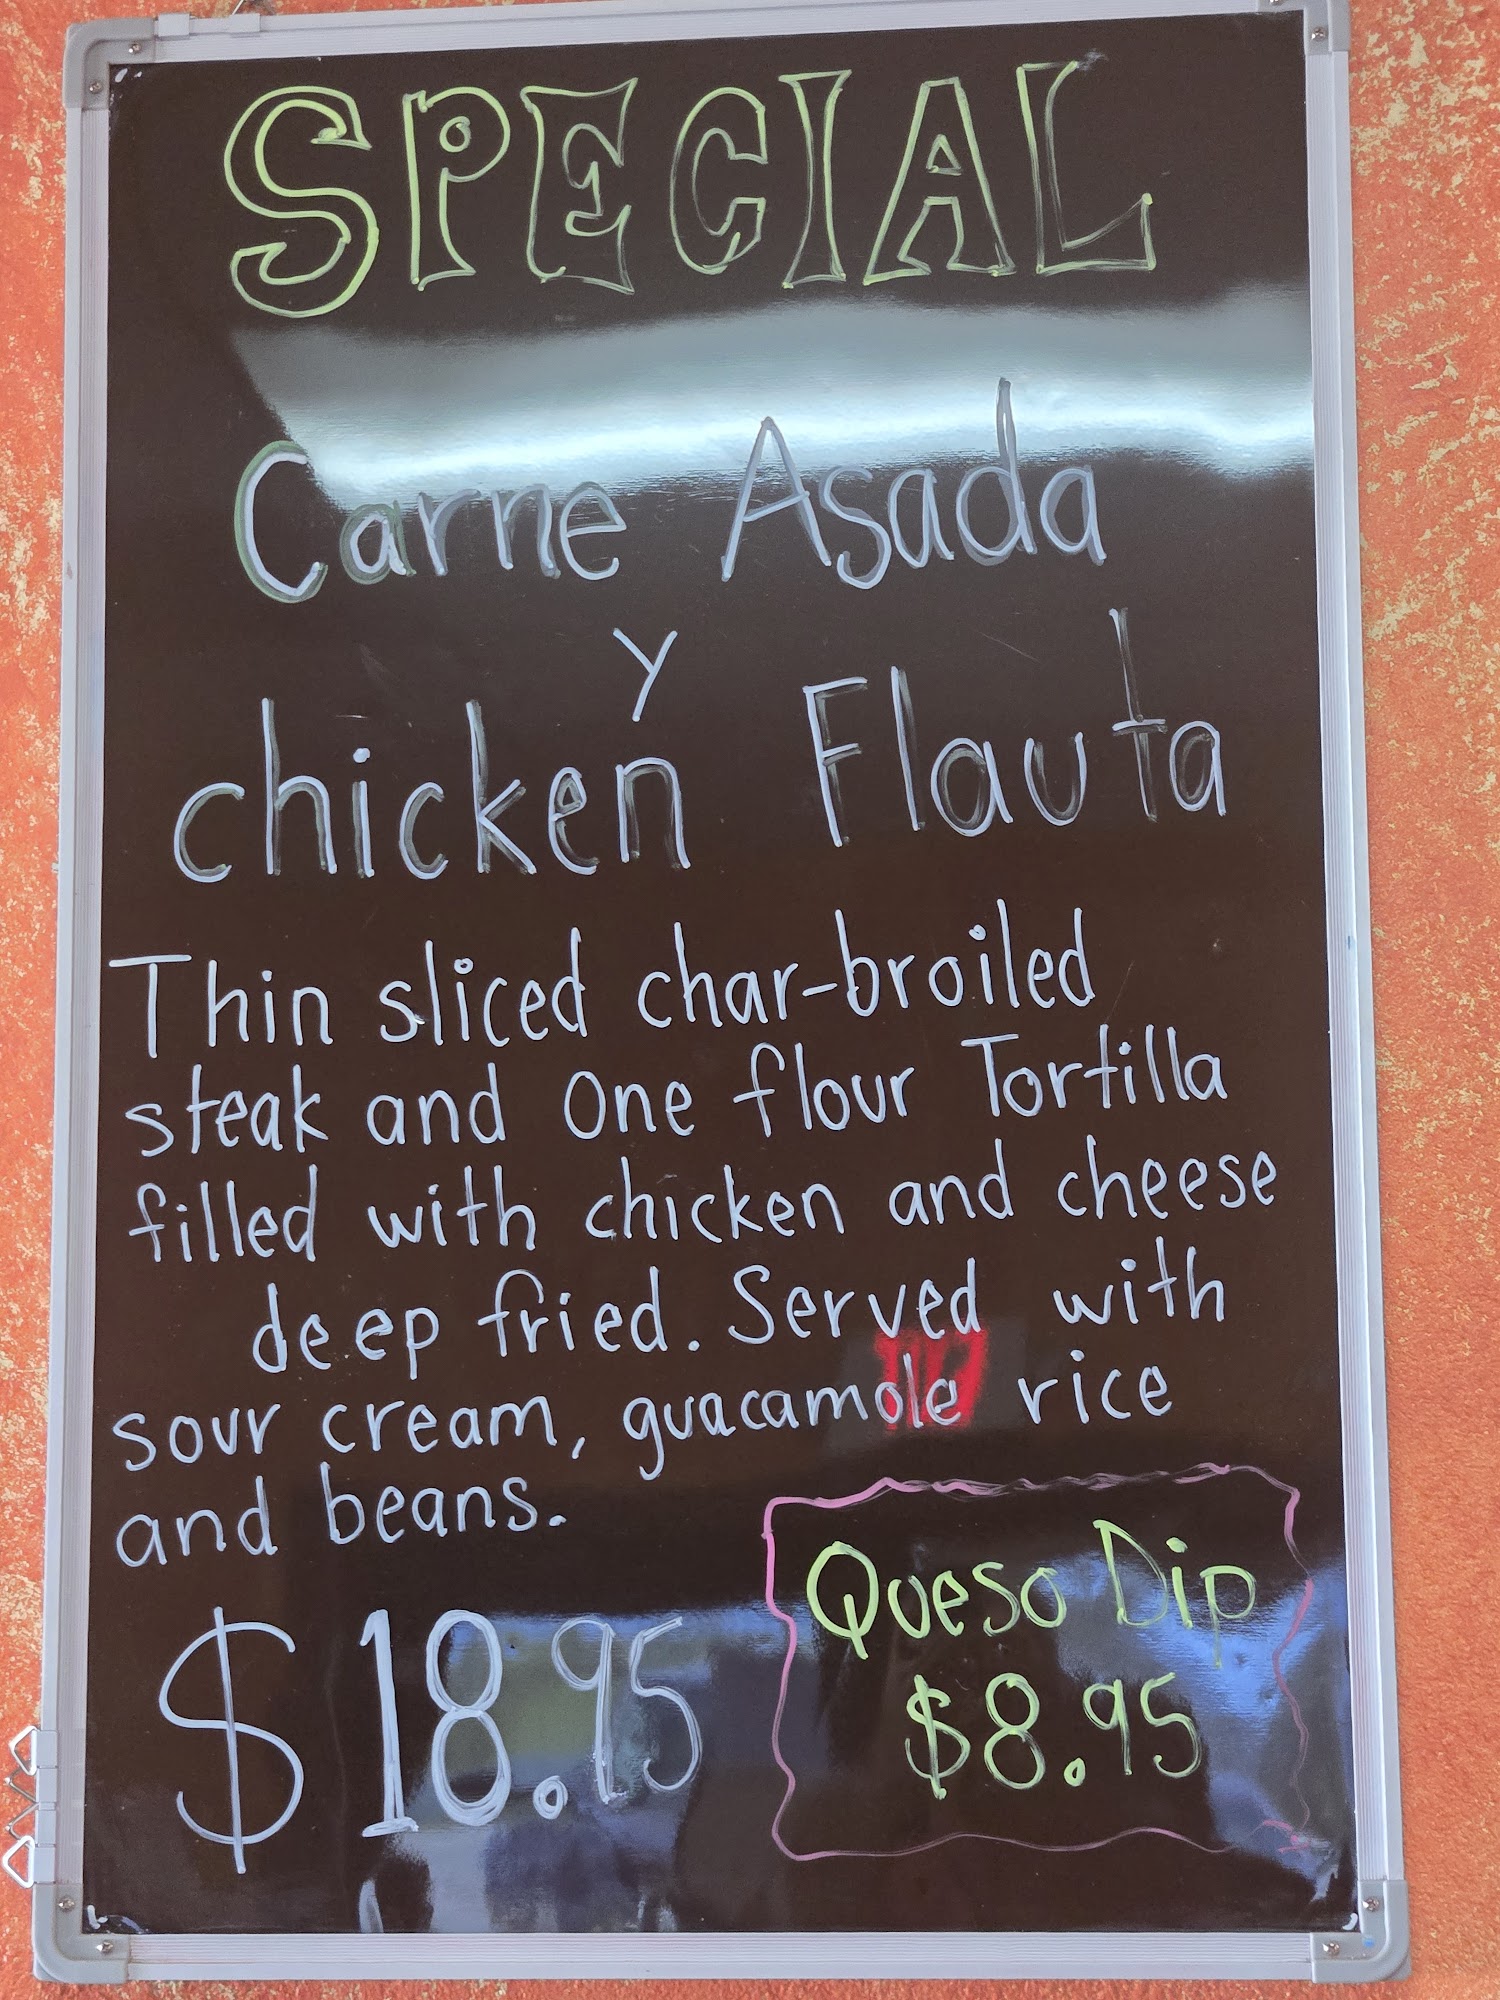 SPECIAL
Carne Asada
y
chicken Flauta
Thin sliced char-broiled
steak and One flour Tortilla
filled with chicken and cheese
deep fried. Served with
sour cream, guacamole rice
and beans.
$18.95
Queso Dip
$8.95